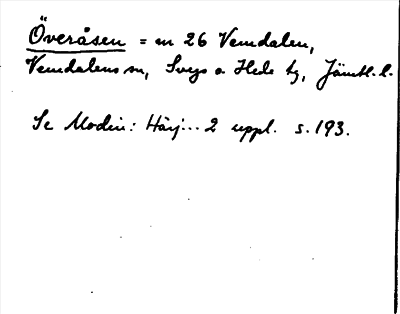 Överåsen = en 26 Vemdalen,
Vemdalens sn, Svegs o Hede tg, Jämtl. l.
Se Modin: Härj... 2 uppl. s. 193.